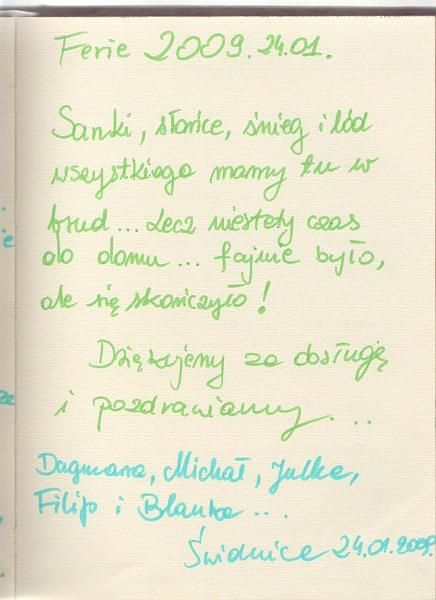 Ferie 2009. 24.01.
Sanki, słońce, śnieg i lód
wszystkiego mamy tu w
bród... Lecz niestety czas
do domu... fajnie było,
ale się skończyło!
Dziękujemy za obsługę
i pozdrawiamy...
Dagmara, Michał, Julka,
Filip i Blanka...
Świdnica 24.01.2009.